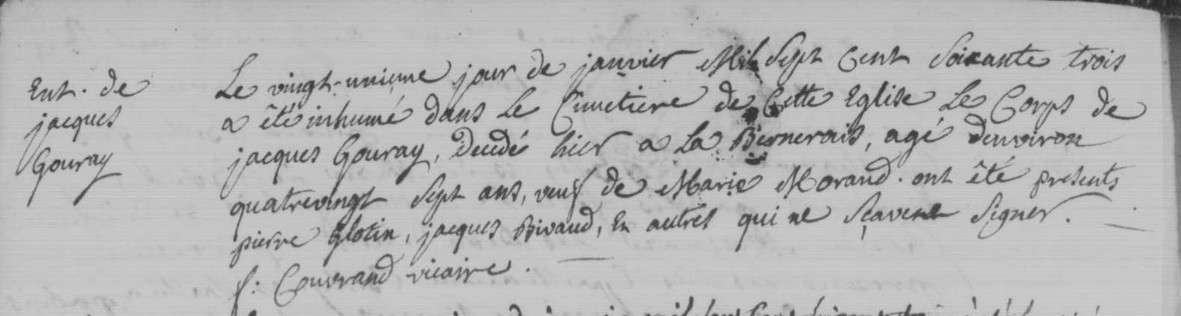 Ent. de
jacques
Gouray
Le vingt-unieme jour de janvier Mil Sept Cent Soixante trois
a été inhumé dans Le Cimetiere de Cette Eglise Le Corps de
jacques Gouray, Decedé hier a La Bernerais, agé d'environ
quatrevingt Sept ans, veuf de Marie Morand. ont été presents
pierre Glotin, jacques Rivaud, En autres qui ne Sçavent Signer.
f: Couvrand vicaire.